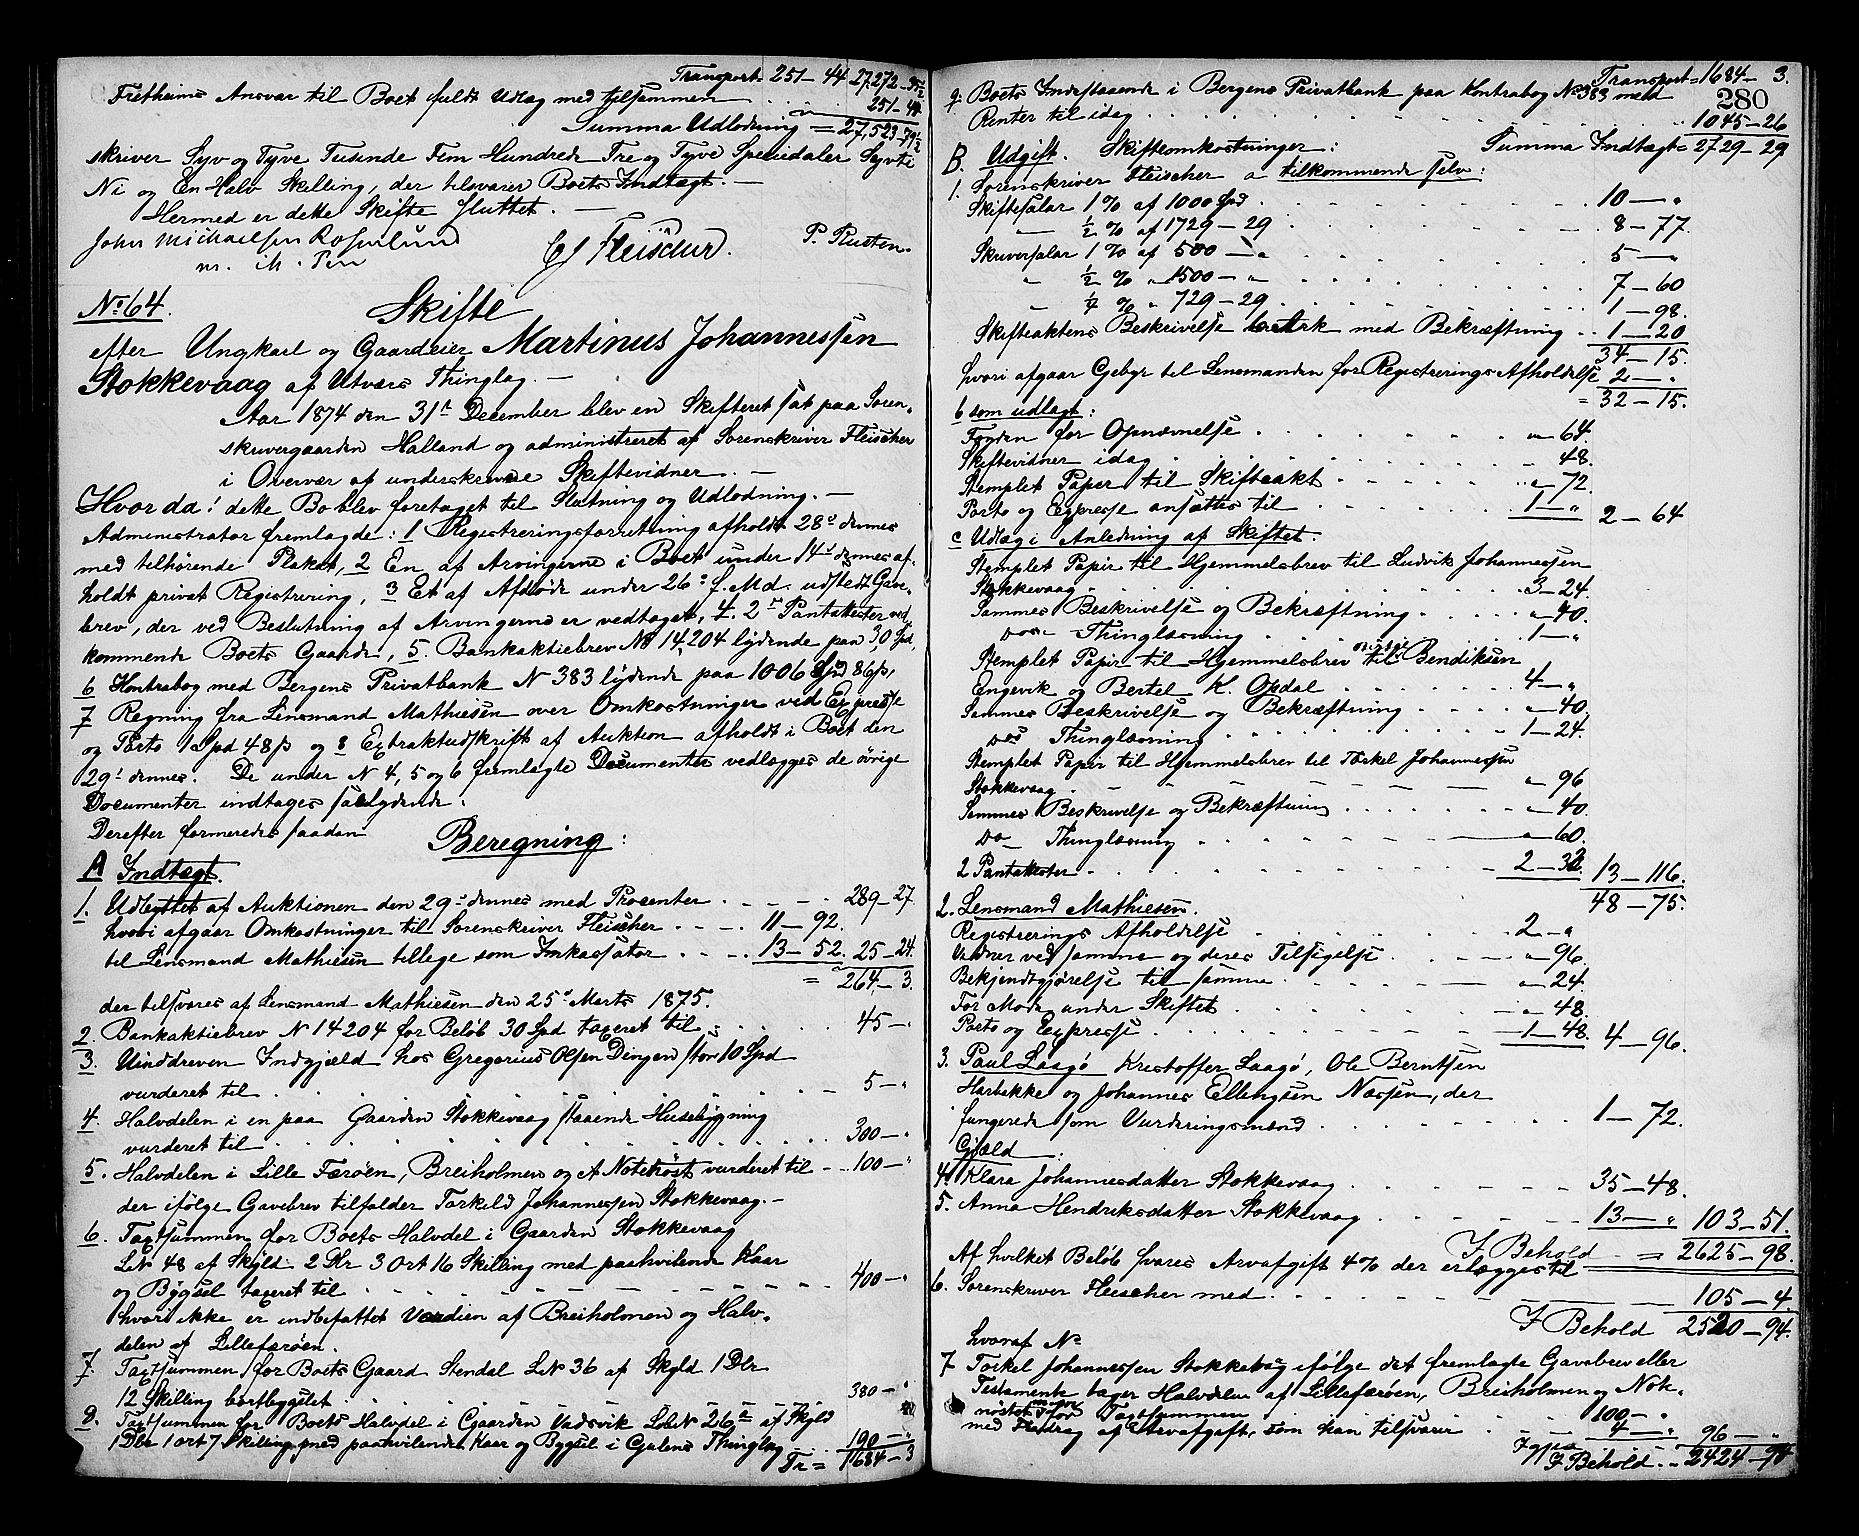 Transport = 251 – 44 27,272 – 35½
Fretheims Ansvar til Boet fuldt Udlæg med tilsammen . . . 251 – 44
Summa Udlodning = 27,523 – 79½
skriver Syv og Tyve Tusinde Fem Hundrede Tre og Tyve Speciedaler Sytti
Ni og En Halv Skilling, der tilsvarer Boets Indtægt. –
Hermed er dette Skifte sluttet. –
John Michaelsen Rosenlund Fleischer. P. Rusten.
m. ih. Pen
No 64. Skifte
efter Ungkarl og Gaardeier Martinus Johannessen
Stokkevaag af Utvers Thinglag. –
Aar 1874 den 31te December blev en Skifteret sat paa Soren-
skrivergaarden Halland og administreret af Sorenskriver Fleischer
i Overvær af underskrevne Skiftevidner. –
Hvorda! dette Bo blev foretaget til Slutning og Udlodning. –
Administrator fremlagde: 1 Registreringsforretning afholdt 28de dennes
med tilhörende Plakat, 2 En af Arvingerne i Boet under 14de dennes af-
holdt privat Registrering, 3 Et af Afdøde under 26de f. Md. udstedt Gave-
brev, der ved Beslutning af Arvingerne er vedtaget, 4. 2de Pantattester ved-
kommende Boets Gaarde, 5. Bankaktiebrev No 14,204 lydende paa 30 Spd,
6 Kontrabog med Bergens Privatbank N 383 lydende paa 1006 Spd 86 ß,
7 Regning fra Lensmand Mathiesen over Omkostninger ved Expresse
og Porto 1 Spd 48 ß og 8 Extraktudskrift af Auktion afholdt i Boet den
29de dennes. De under N 4, 5 og 6 fremlagte Documenter vedlægges de øvrige
Documenter indtages saalydende:
Derefter formeredes saadan
Beregning:
A Indtægt.
1. Udbyttet af Auktionen den 29de dennes med Procenter . . . 289 – 27
hvori afgaar Omkostninger til Sorenskriver Fleischer . . . 11 – 92.
til Lensmand Mathiesen tillige som Inkassator . . . 13 – 52. 25 – 24.
= 264 – 3.
der tilsvares af Lensmand Mathiesen den 25de Marts 1875.
2. Bankaktiebrev N 14204 for Beløb 30 Spd taxeret til . . . 45 – "
3. Uinddreven Indgjæld hos Gregorius Olsen Dingen stor 10 Spd
vurderet til . . . 5 – "
4. Halvdelen i en paa Gaarden Stokkevaag staaende Husebygning
vurderet til . . . 300 – "
5. Halvdelen i Lille Færöen, Breiholmen og A Notenöst vurderet til . . . 100 – "
der ifölge Gavebrev tilfalder Torkild Johannessen Stokkevaag. –
6. Taxtsummen for Boets Halvdel i Gaarden Stokkevaag
L.N 48 af Skyld 2 Dlr 3 Ort 16 Skilling med paahvilende Kaar
og Bygsel taxeret til . . . 400 – "
hvori ikke er indbefattet Værdien af Breiholmen og Halv-
delen af Lillefærøen.
7. Taxtsummen for Boets Gaard Stendal L.N 36 af Skyld 1 Dlr
12 Skilling bortbygslet . . . 380 – "
8. Taxtsummen for Boets Halvdel i Gaarden Vadsvik LöbN 26a af Skyld
1 Dlr 1 ort 7 Skilling med paahvilende Kaar og Bygsel i Gulens Thinglag . . . 190 – "
Tr = 1684 – 3
Transport = 1684 – 3.
9. Boets Indestaaende i Bergens Privatbank paa Kontrabog No 383 med
280
Renter til idag . . . 1045 – 26
Summa Indtægt = 2729 – 29
B. Udgift. Skifteomkostninger:
1. Sorenskriver Fleischer a tilkommende selv:
Skiftesalar 1 % af 1000 Spd . . . 10 – "
– ½ % af 1729 – 29 . . . 8 – 77.
Skriversalar 1 % af 500 – " . . . 5 – "
" ½ % " 1500 – " . . . 7 – 60
– ¼ % " 729 – 29 . . . 1 – 98.
Skifteaktens Beskrivelse Ark med Bekræftning . . 1 – 20
34 – 15.
hvori afgaar Gebyr til Lensmanden for Registrerings Afholdelse 2 – "
= 32 – 15.
b som udlagt:
Fogden for Opnævnelse . . . " – 64.
Skiftevidner idag . . . 48.
Stemplet Papir til Skifteakt . . . " – 72.
Porto og Expresse ansættes til . . . 1 – " 2 – 64
c Udlæg i Anledning af Skiftet.
Stemplet Papir til Hjemmelsbrev til Ludvik Johannessen
Stokkevaag . . . 3 – 24.
Sammes Beskrivelse og Bekræftning . . . " – 40.
Do – Thinglæsning . . . 1 – "
Stemplet Papir til Hjemmelsbrev til Bendiksen
Engevik og Bertel K. Opdal . . . 4 – "
Sammes Beskrivelse og Bekræftning . . . " – 40.
Do Thinglæsning . . . 1 – 24.
Stemplet Papir til Hjemmelsbrev til Torkel Johannessen
Stokkevaag . . . " – 96
Sammes Beskrivelse og Bekræftning . . . " – 40.
Do – Thinglæsning . . . " – 60.
2 Pantattester . . . 2 – 32. 13 – 116.
48 – 75.
2. Lensmand Mathiesen.
Registrerings Afholdelse . . . 2 – "
Vidner ved samme og deres Tilsigelse . . . " – 96.
Bekjendtgjörelse til samme . . . " – 24
For Möde under Skiftet . . . " – 48.
Porto og Expresse . . . 1 – 48. 4 – 96.
3. Paul Laagö Kristoffer Laagö, Ole Berntsen
Harbakke og Johannes Ellingsen Næssen, der
fungerede som Vurderingsmænd . . . 1 – 72.
Gjæld:
4. Klara Johannesdatter Stokkevaag . . . 35 – 48.
5. Anna Hendriksdatter Stokkevaag . . . 13 – " 103 – 51.
I Behold = 2625 – 98.
Af hvilket Beløb svares Arvafgift 4 % der erlægges til
6. Sorenskriver Fleischer med . . . 105 – 4.
I Behold 2520 – 94.
hvoraf No
7 Torkel Johannessen Stokkevaag ifölge det fremlagte Gavebrev eller
Testamente tager Halvdelen af Lillefærøen, Breiholmen og Note-
nöstet for Taxtsummen . . . 100 – "
med Fradrag af Arvafgift, som han tilsvarer . . . 4 – " 96 – "
I Behold . . 2424 – 94